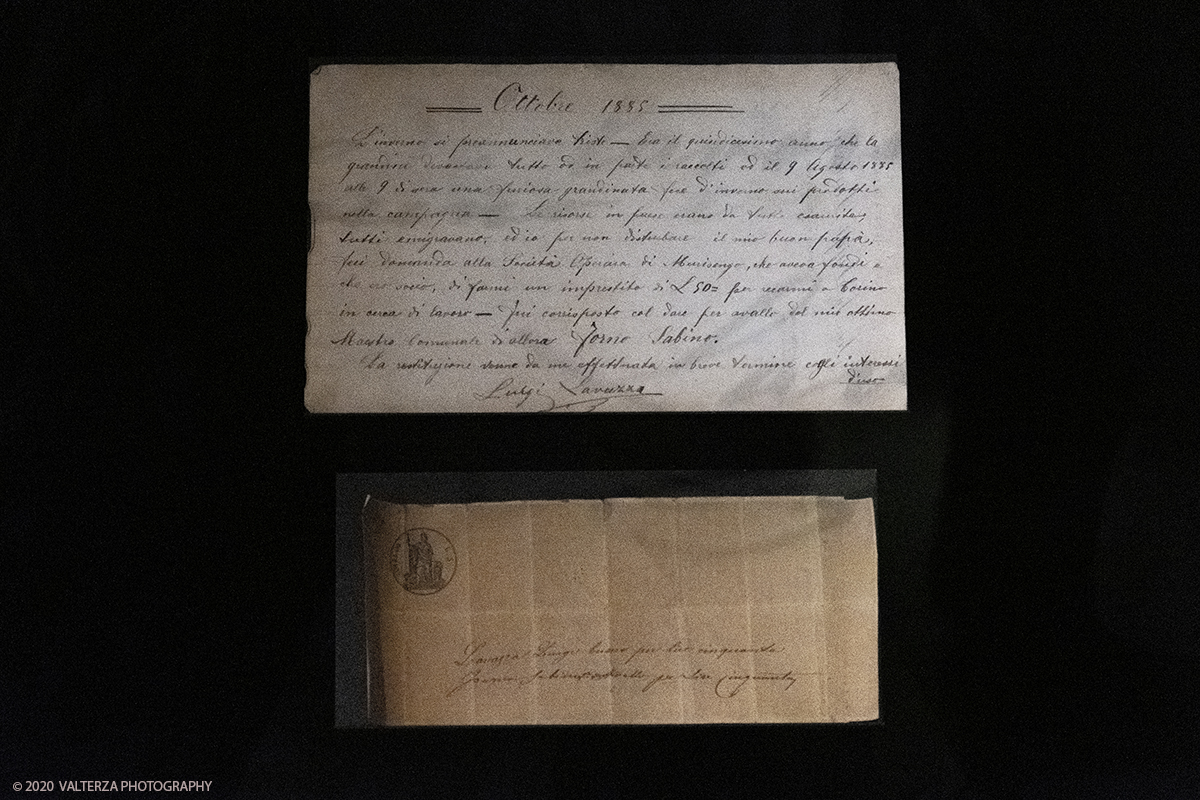 Ottobre 1885
L'inverno si preannunciava triste — Era il quindicesimo anno che la
grandine devastava tutto od in parte i raccolti ed il 9 Agosto 1885
alle 9 di sera una furiosa grandinata fece d'inverno sui prodotti
nella campagna — Le risorse in paese erano da tutti esaurite,
tutti emigravano, ed io per non disturbare il mio buon papà,
feci domanda alla Società Operaia di Murisengo, che aveva fondi e
che ero socio, di farmi un imprestito di L 50= per recarmi a Torino
in cerca di lavoro — Fui corrisposto col dare per avallo del mio ottimo
Maestro Comunale di allora Sabino.
La restituzione venne da me effettuata in breve termine cogli interessi
d'uso
Luigi Lavazza
Lavazza Luigi buono per lire cinquanta
Sabino per lire Cinquanta
© 2020 VALTERZA PHOTOGRAPHY